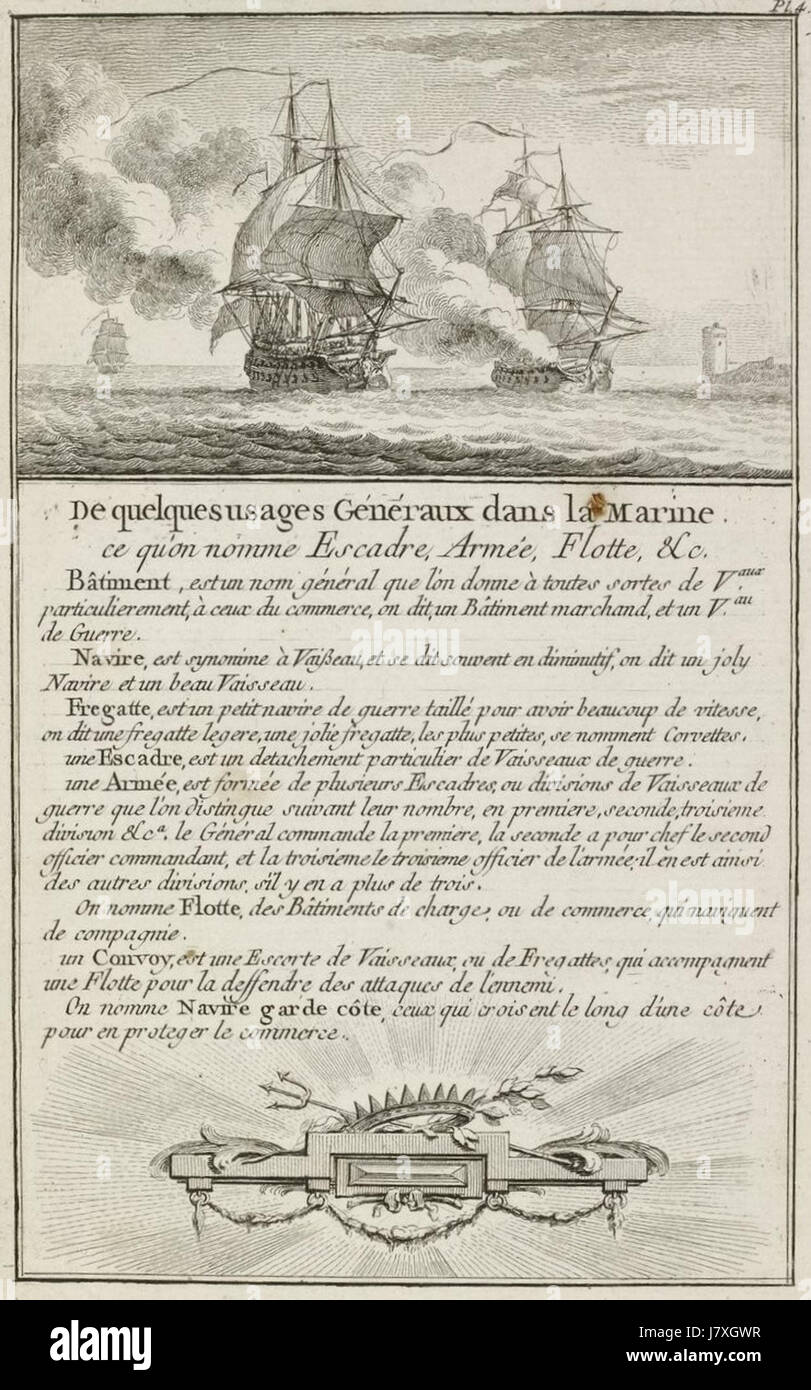 Pl.4.
De quelques usages Généraux dans la Marine.
ce qu'on nomme Escadre, Armée, Flotte, &c.
Bâtiment, est un nom général que l'on donne à toutes sortes de V.aux
particulierement, à ceux du commerce, on dit, un Bâtiment marchand, et un V.au
de Guerre.
Navire, est synonime à Vaißeau, et se dit souvent en diminutif, on dit un joly
Navire et un beau Vaisseau.
Fregatte, est un petit navire de guerre taillé pour avoir beaucoup de vitesse,
on dit une fregatte legere, une jolie fregatte, les plus petites, se nomment Corvettes.
une Escadre, est un detachement particulier de Vaisseaux de guerre.
une Armée, est formée de plusieurs Escadres, ou divisions de Vaisseaux de
guerre que l'on distingue suivant leur nombre, en premiere, seconde, troisieme
division &c.a le Général commande la premiere, la seconde a pour chef le second
officier commandant, et la troisieme le troisieme officier de l'armée; il en est ainsi
des autres divisions, s'il y en a plus de trois.
On nomme Flotte, des Bâtiments de charge, ou de commerce, qui naviguent
de compagnie.
un Convoy, est une Escorte de Vaisseaux, ou de Fregattes, qui accompagnent
une Flotte pour la deffendre des attaques de l'ennemi.
On nomme Navire garde côte, ceux qui croisent le long d'une côte
pour en proteger le commerce.
alamy
alamy
alamy
a
a
a
a
alamy
Image ID: J7XGWR
www.alamy.com